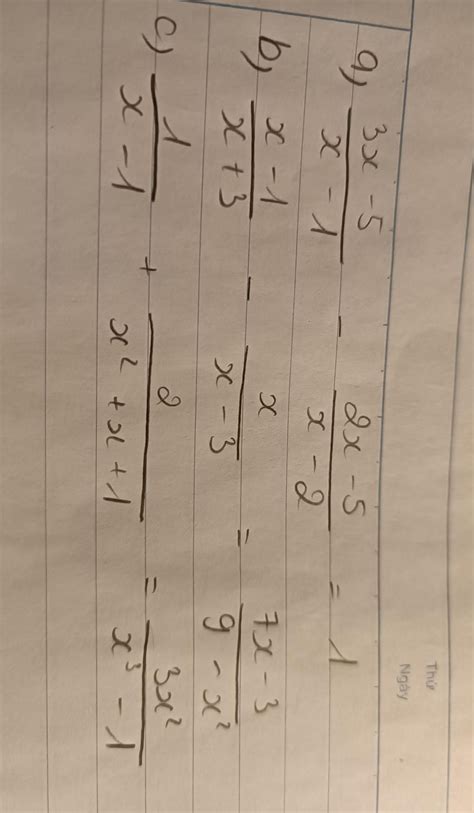 Thứ
Ngày
a) \frac{3x - 5}{x - 1} - \frac{2x - 5}{x - 2} = 1
b) \frac{x - 1}{x + 3} - \frac{x}{x - 3} = \frac{7x - 3}{9 - x^2}
c) \frac{1}{x - 1} + \frac{2}{x^2 + x + 1} = \frac{3x^2}{x^3 - 1}